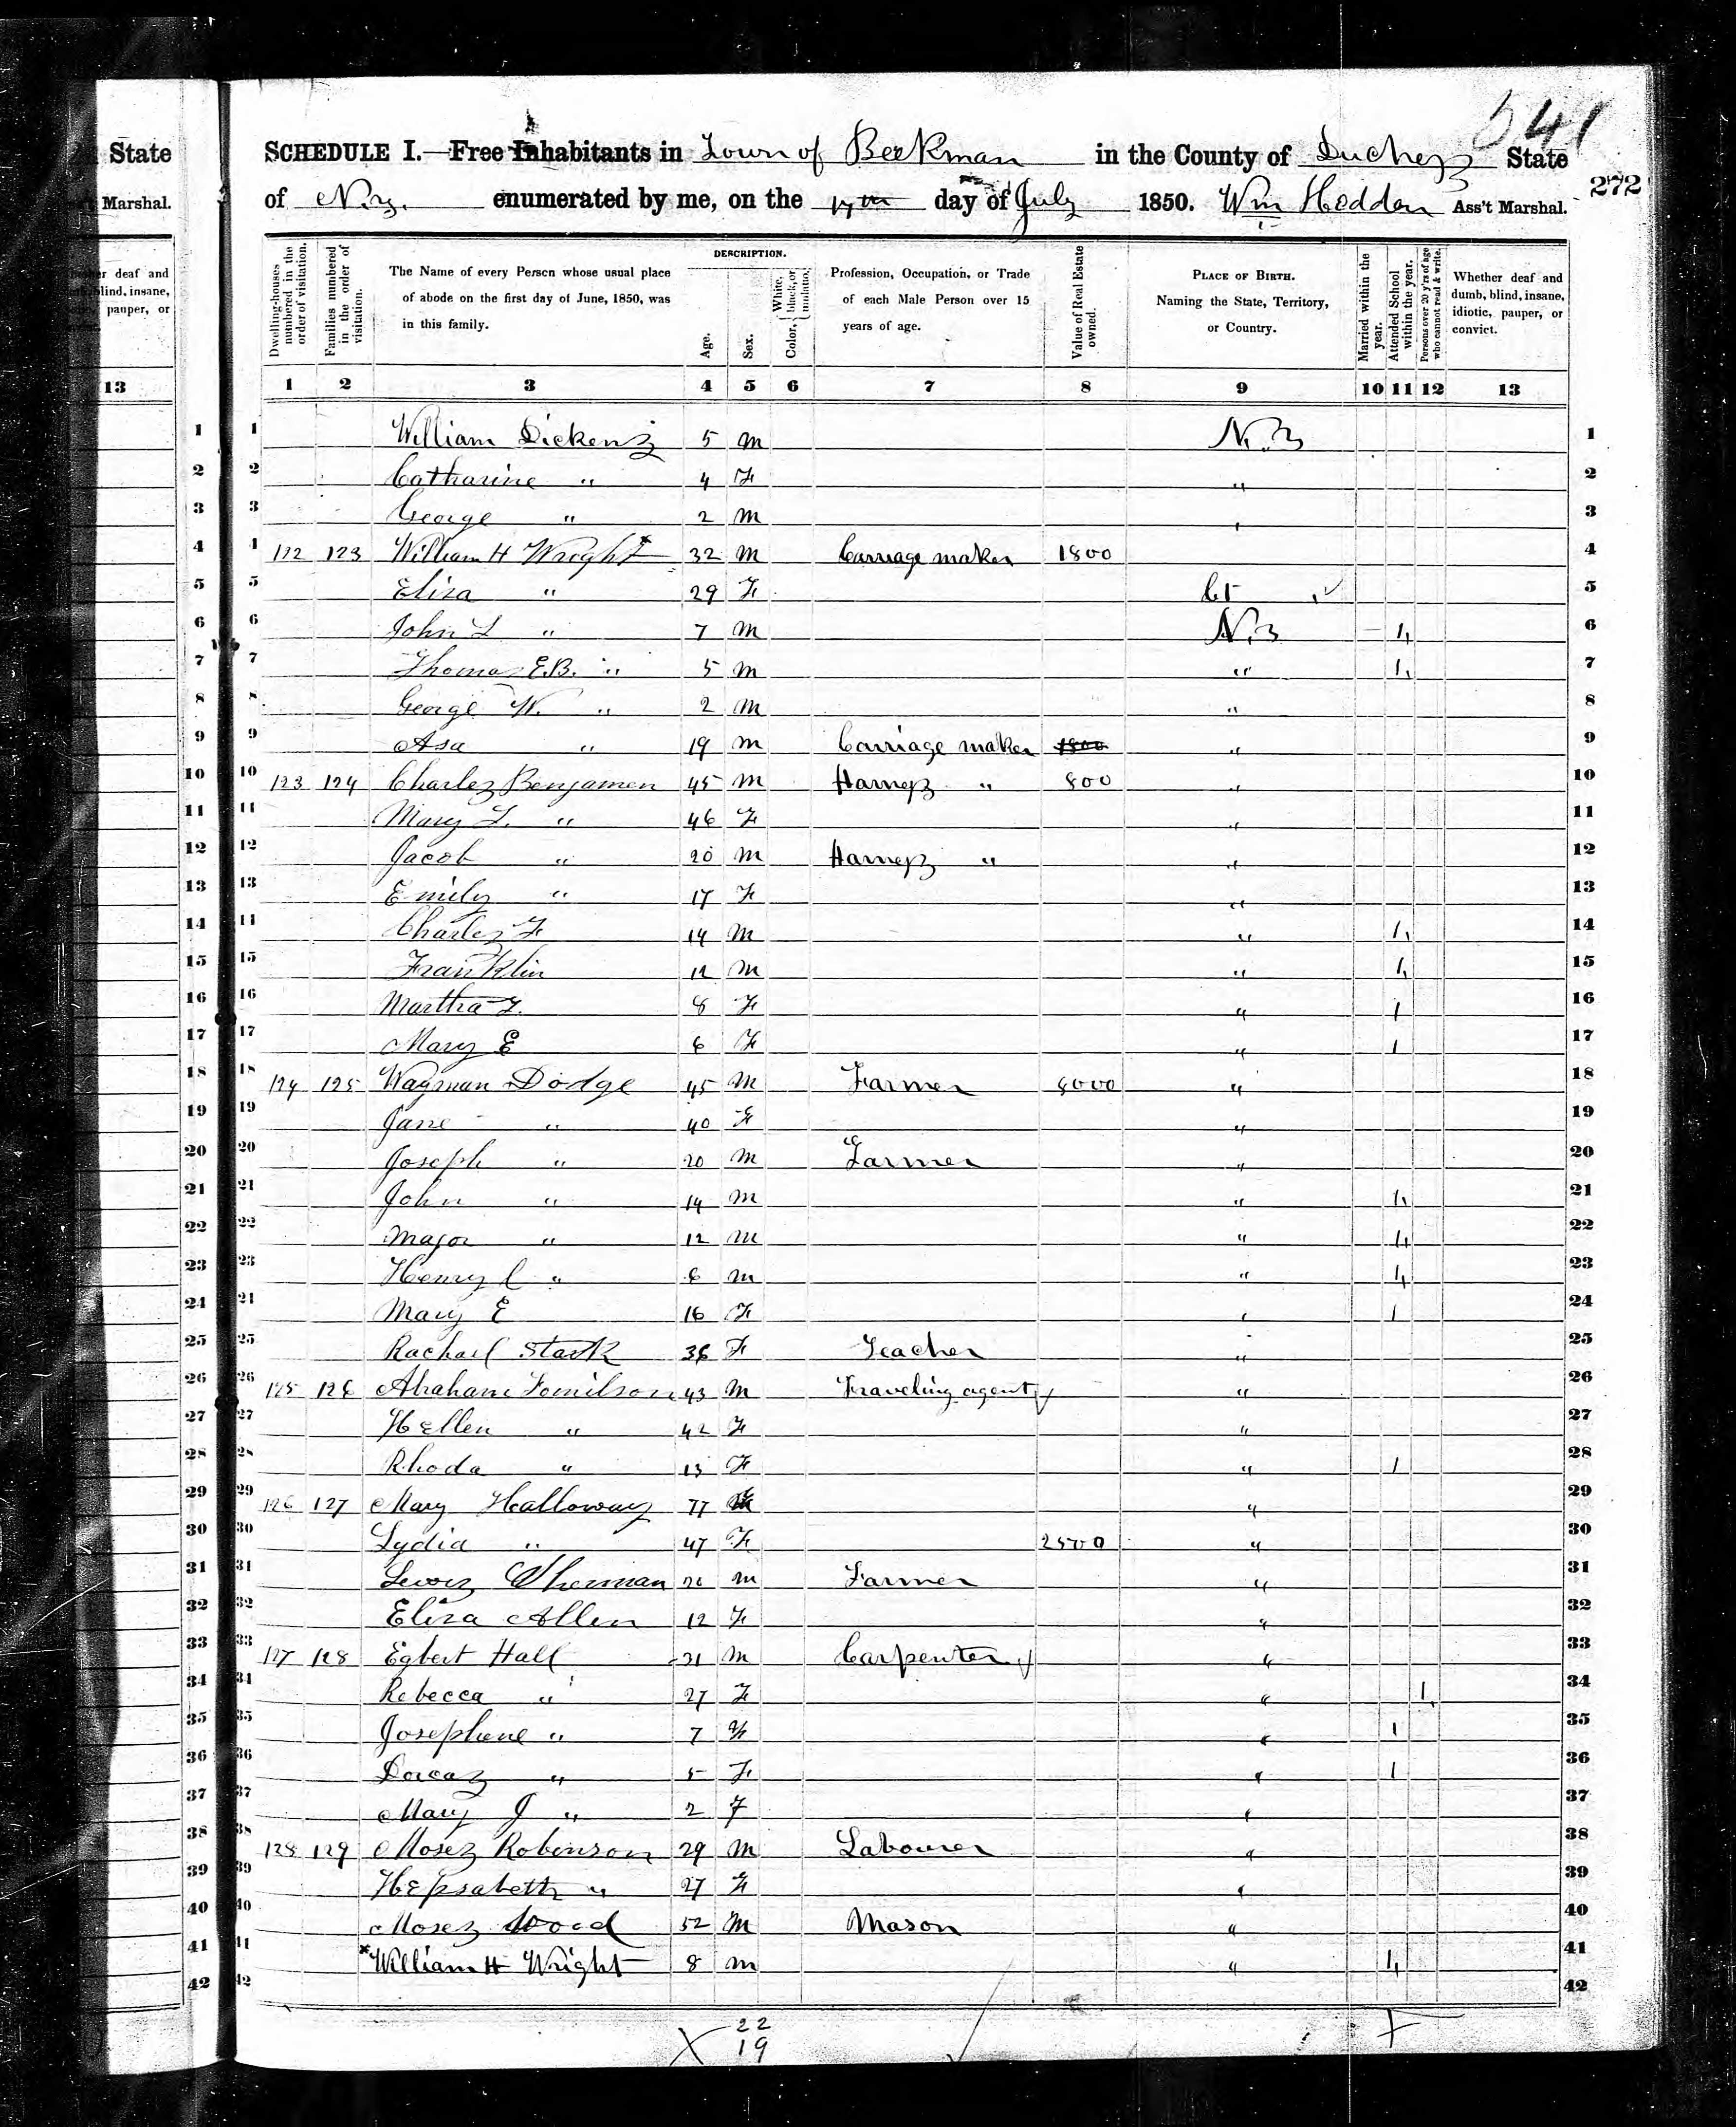 State
Marshal.
deaf and
blind, insane,
pauper, or
13
541
272
SCHEDULE I.—Free Inhabitants in Town of Beekman in the County of Duchess State
of N.Y. enumerated by me, on the 17th day of July 1850. Wm Hedden Ass't Marshal.
Dwelling-houses numbered in the order of visitation.
Families numbered in the order of visitation.
The Name of every Person whose usual place of abode on the first day of June, 1850, was in this family.
DESCRIPTION.
Age.
Sex.
Color, White, black, or mulatto.
Profession, Occupation, or Trade of each Male Person over 15 years of age.
Value of Real Estate owned.
PLACE OF BIRTH. Naming the State, Territory, or Country.
Married within the year.
Attended School within the year.
Persons over 20 y'rs of age who cannot read & write.
Whether deaf and dumb, blind, insane, idiotic, pauper, or convict.
1 2 3 4 5 6 7 8 9 10 11 12 13
1 William Dickens 5 M N.Y 1
2 Catharine " 4 F " 2
3 George " 2 M " 3
4 122 123 William H Wright * 32 M Carriage maker 1800 4
5 Eliza " 29 F Ct 5
6 John L " 7 M N.Y 1 6
7 Thomas E.B. " 5 M " 1 7
8 George W. " 2 M " 8
9 Asa " 19 M Carriage maker 1800 " 9
10 123 124 Charles Benjamen 45 M Harness " 800 " 10
11 Mary L. " 46 F " 11
12 Jacob " 20 M Harness " " 12
13 Emily " 17 F " 13
14 Charles F 14 M " 1 14
15 Franklin 12 M " 1 15
16 Martha F. 8 F " 1 16
17 Mary E 6 F " 1 17
18 124 125 Wayman Dodge 45 M Farmer 8000 " 18
19 Jane " 40 F " 19
20 Joseph " 20 M Farmer " 20
21 John " 14 M " 1 21
22 Major " 12 M " 1 22
23 Henry C " 6 M " 1 23
24 Mary E 16 F " 1 24
25 Rachael Stark 36 F Teacher " 25
26 125 126 Abraham Tomilson 43 M Traveling agent " 26
27 Hellen " 42 F " 27
28 Rhoda " 13 F " 1 28
29 126 127 Mary Halloway 77 F " 29
30 Lydia " 47 F 2500 " 30
31 Lewis Sherman 26 M Farmer " 31
32 Eliza Allen 12 F " 32
33 127 128 Egbert Hall 31 M Carpenter " 33
34 Rebecca " 27 F " 1 34
35 Josephene " 7 F " 1 35
36 Dorcas " 5 F " 1 36
37 Mary J " 2 F " 37
38 128 129 Moses Robinson 29 M Labourer " 38
39 Hepsabeth " 27 F " 39
40 Moses Wood 52 M Mason " 40
41 *William H Wright 8 M " 1 41
42 42
22
19